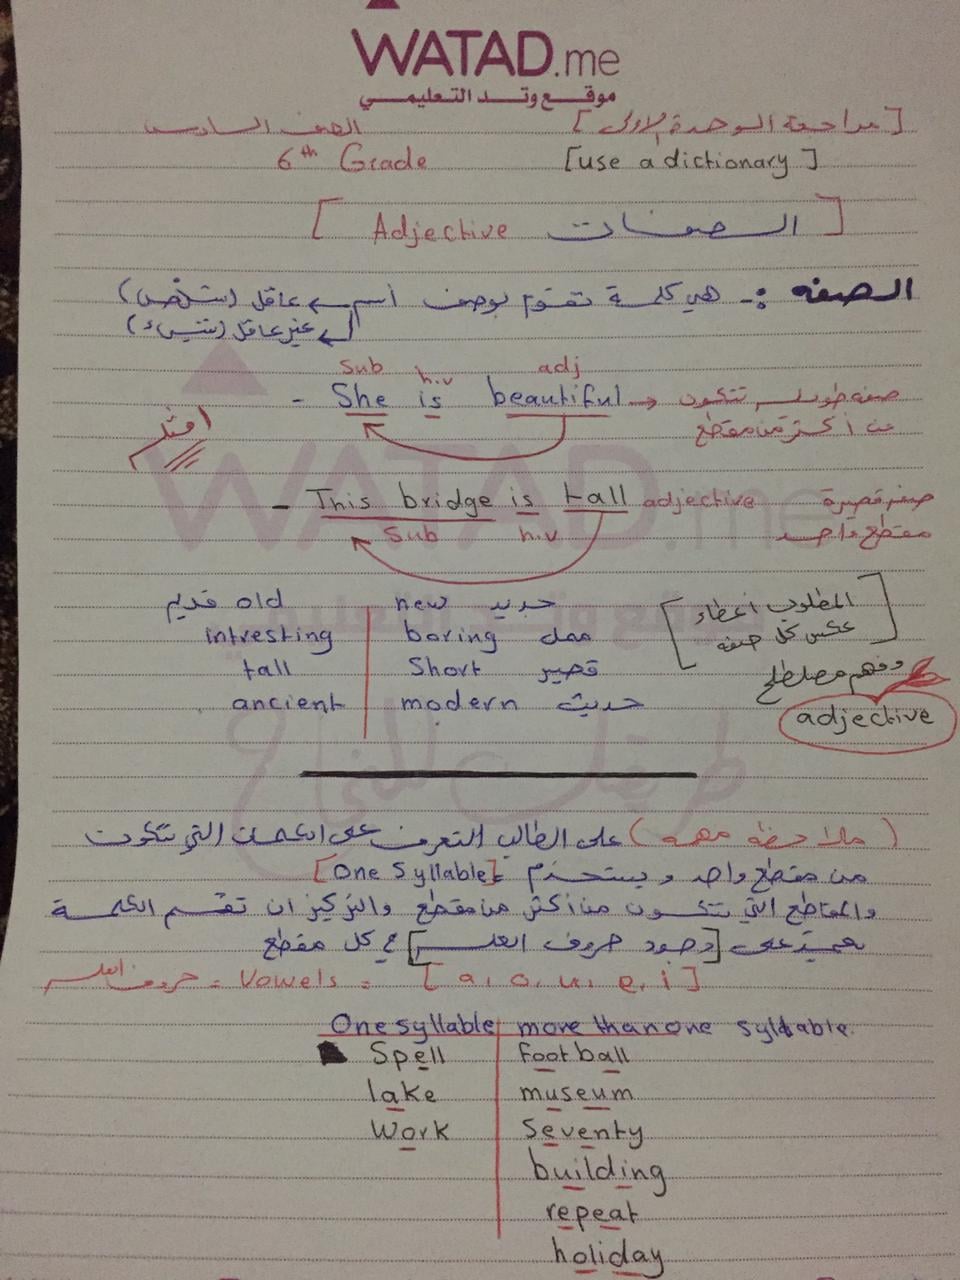 WATAD.me
موقع وتد التعليمي
[مراجعة الوحدة الاولى] الصف السادس
6th Grade [use a dictionary]
[Adjective الصفات]
الصفه :- هي كلمة تقوم بوصف أسم ← عاقل (شخص)
← غير عاقل (شيء)
Sub h.v adj
- She is beautiful → صفه طويله تتكون
من أكثر من مقطع
امثله
- This bridge is tall adjective صفه قصيرة
Sub h.v مقطع واحد
قديم old new جديد
intresting boring ممل
tall Short قصير
ancient modern حديث
[المطلوب أعطاء
عكس كل صفه]
وفهم مصطلح
adjective
(ملاحظة مهمه) على الطالب التعرف على الكلمات التي تتكون
من مقطع واحد ويستخدم [One Syllable]
والمقاطع التي تتكون من أكثر من مقطع والتركيز ان تقسم الكلمة
يعتمد على [وجود حروف العله] في كل مقطع
حروف العله = Vowels = [a, o, u, e, i]
One syllable more than one syllable.
Spell football
lake museum
Work Seventy
building
repeat
holiday